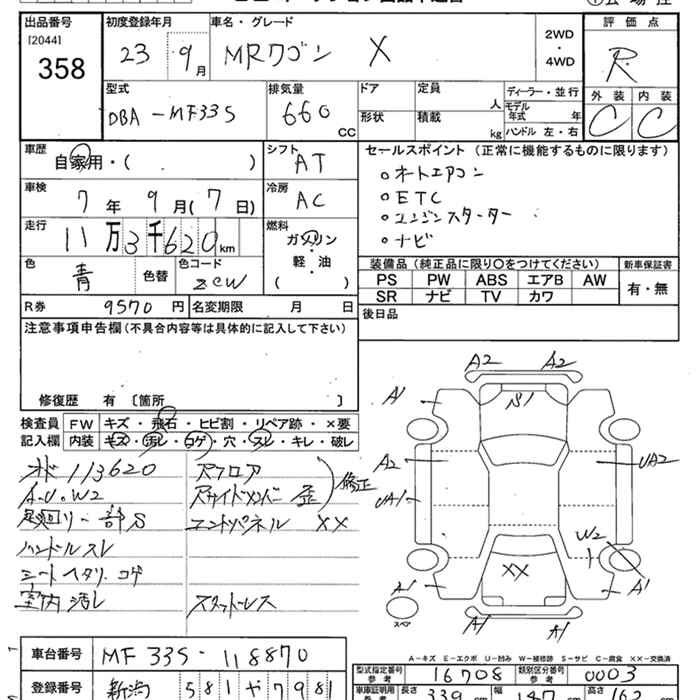 出品番号
[2044]
358
初度登録年月
23 9月
車名・グレード
MRワゴン X
2WD
・
4WD
評価点
R
外装 内装
C C
型式
DBA-MF33S
排気量
660 CC
ドア
形状
定員
人
積載
kg
ディーラー・並行
モデル年式 年
ハンドル 左・右
車歴
自家用・( )
シフト
AT
車検
7年 9月(7日)
冷房
AC
走行
11万3千620km
燃料
ガソリン
・
軽・油
( )
色
青
色替
色コード
ZCW
セールスポイント(正常に機能するものに限ります)
○オートエアコン
○ETC
○エンジンスターター
○ナビ
装備品(純正品に限り○をつけてください)
PS PW ABS エアB AW
SR ナビ TV カワ
新車保証書
有・無
R券 9570円
名変期限 月 日
後日品
注意事項申告欄(不具合内容等は具体的に記入して下さい)
修復歴 有〔箇所 〕
検査員記入欄
FW キズ・飛石・ヒビ割・リペア跡・×要
内装 キズ・汚レ・コゲ・穴・スレ・キレ・破レ
オド113620
A.U.W2
足廻リ一部S
ハンドルスレ
シートヘタリ.コゲ
室内汚レ
スタットレス
Rフロア
Rサイドメンバー歪
修正
エンドパネル XX
A2 A2
A1
A2
UA1
UA2
W2
XX
A1
A1
A1 A1
スペア
A-キズ E-エクボ U-凹み W-補修跡 S-サビ C-腐食 XX-交換済
車台番号 MF33S-118870
登録番号 新潟 581 や 7981
型式指定番号参考 16708
類別区分番号参考 0003
車庫証明用参考
長さ 339
幅 147
高さ 162